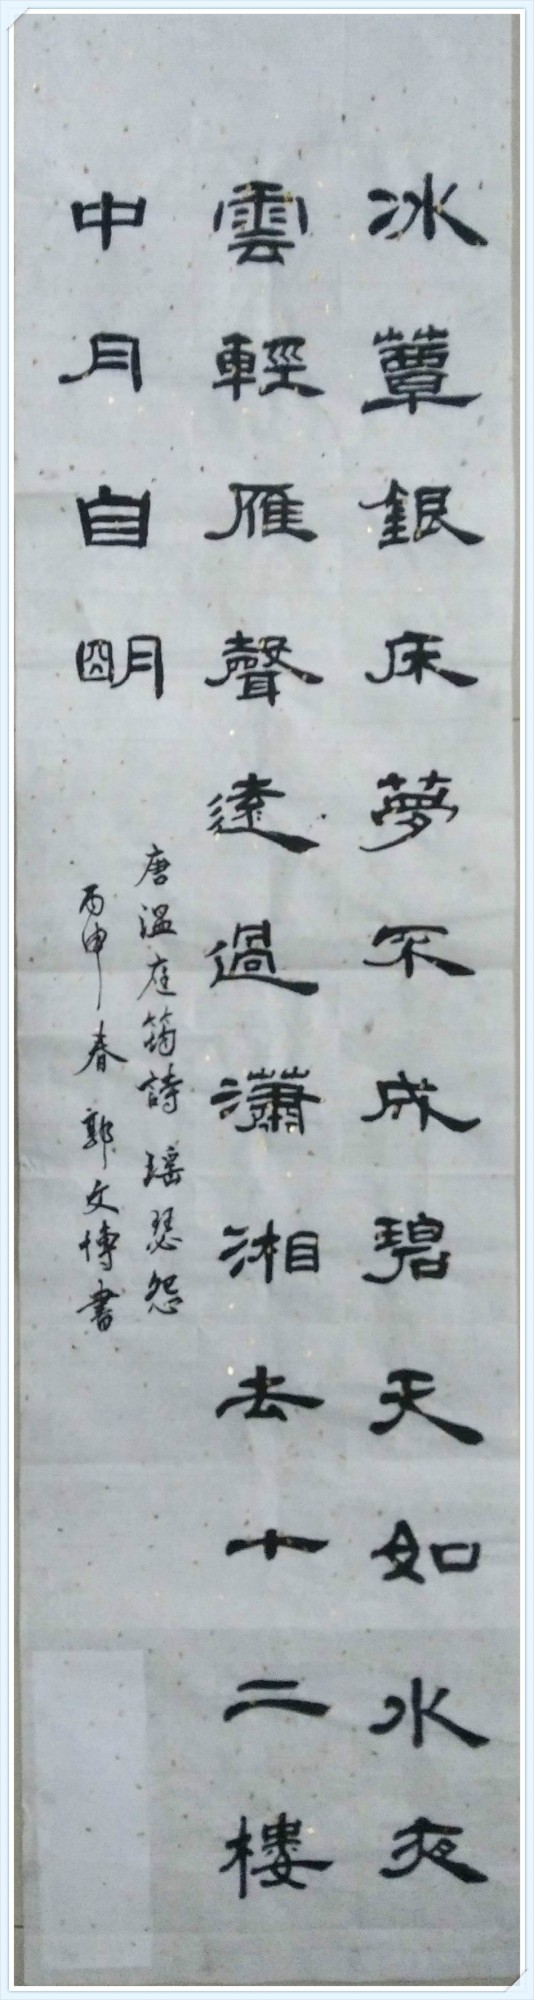 冰蕈銀床夢不成碧天如水夜
雲輕雁聲遠過瀟湘去十二樓
中月自明
唐溫庭筠詩瑶瑟怨
丙申春郭文博書